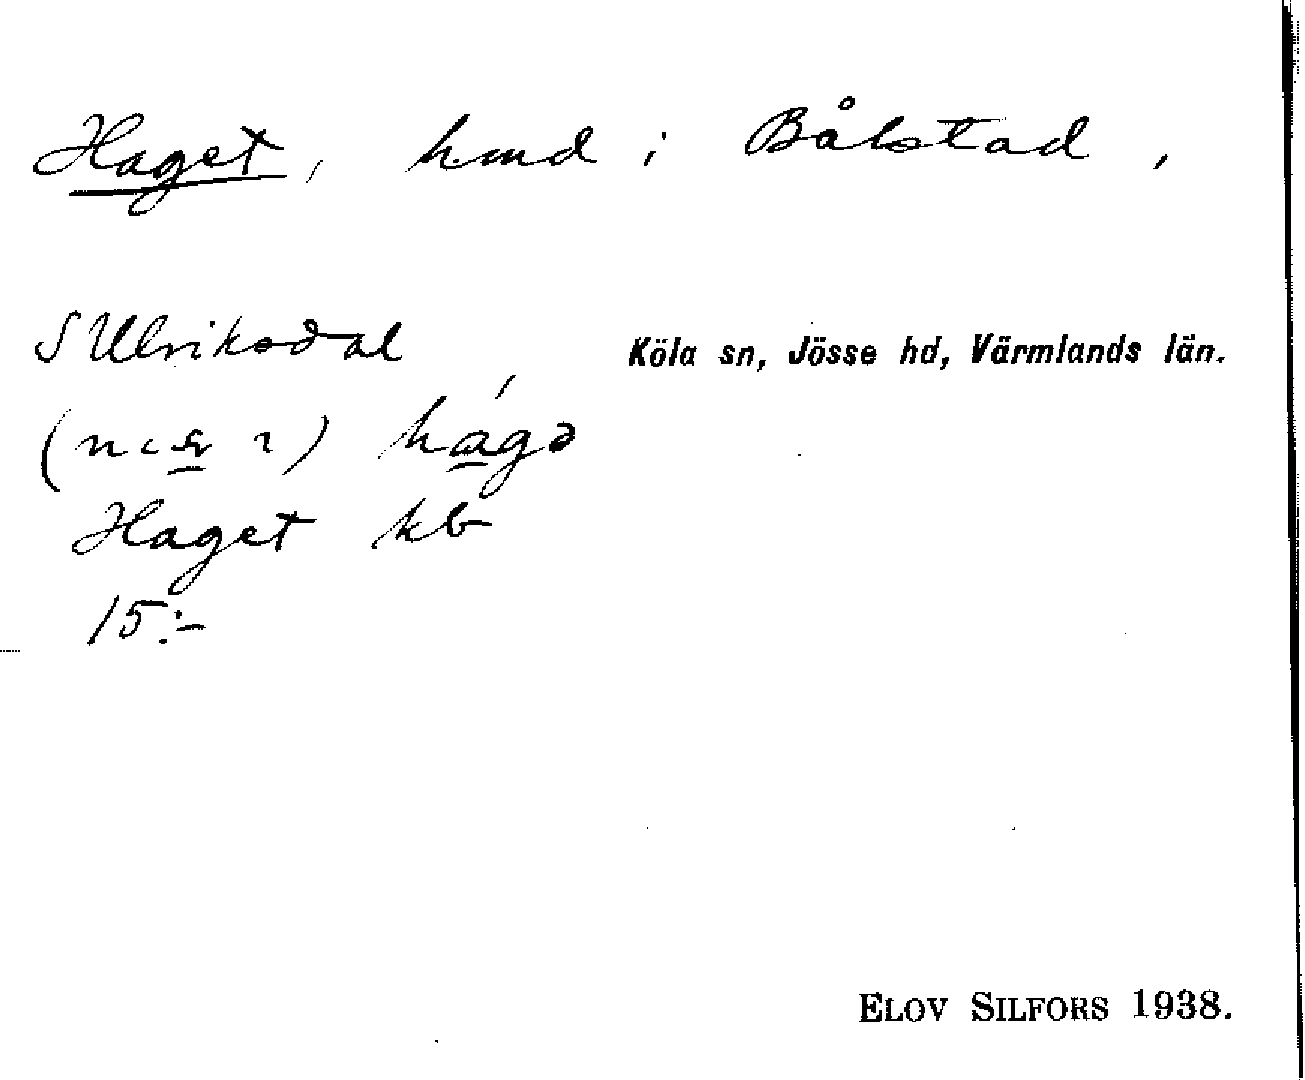 Haget, hmd i Bålstad,
S Ulriksdal
Köla sn, Jösse hd, Värmlands län.
hágə
Haget kb
15:-
ELOV SILFORS 1938.